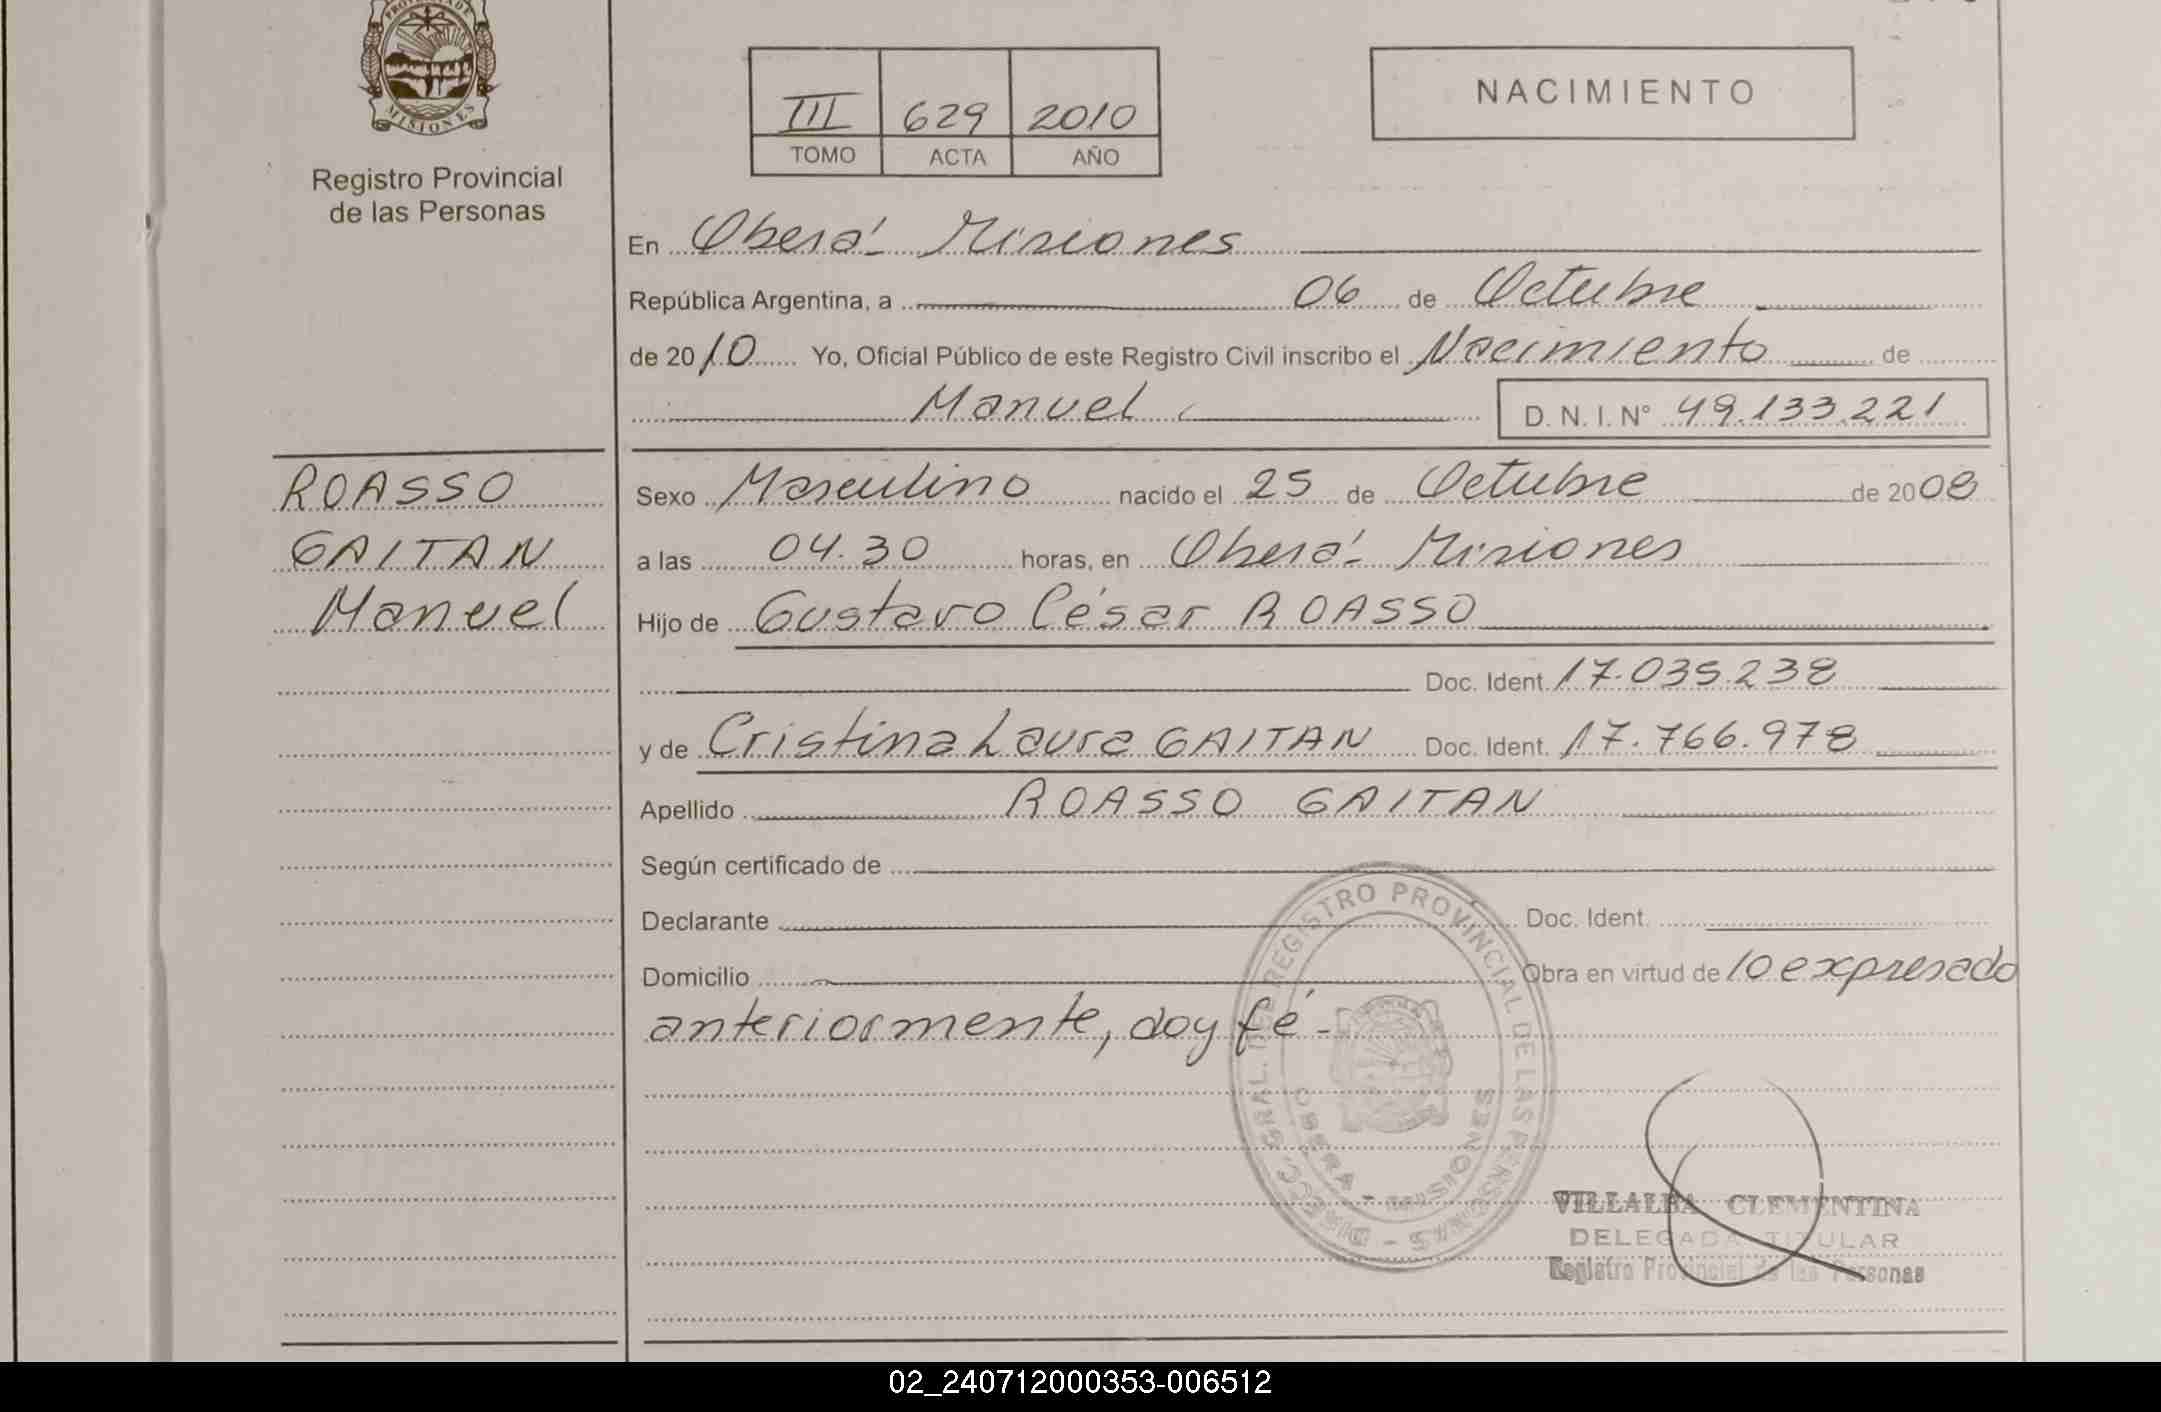 PROVINCIA DE
MISIONES
Registro Provincial
de las Personas
III 629 2010
TOMO ACTA AÑO
NACIMIENTO
En Oberá - Misiones
República Argentina, a 06 de Octubre
de 2010 Yo, Oficial Público de este Registro Civil inscribo el Nacimiento de
Manuel D. N. I. N° 49.133.221
ROASSO
GAITAN
Manuel
Sexo Masculino nacido el 25 de Octubre de 2008
a las 04.30 horas, en Oberá - Misiones
Hijo de Gustavo César ROASSO
Doc. Ident. 17.035.238
y de Cristina Laura GAITAN Doc. Ident. 17.766.978
Apellido ROASSO GAITAN
Según certificado de
Declarante Doc. Ident.
Domicilio Obra en virtud de lo expresado
anteriormente, doy fé -
DIRECC. GRAL. DEL REGISTRO PROVINCIAL DE LAS PERSONAS -
OBERA - MISIONES
VILLALBA CLEMENTINA
DELEGADA TITULAR
Registro Provincial de las Personas
02_240712000353-006512